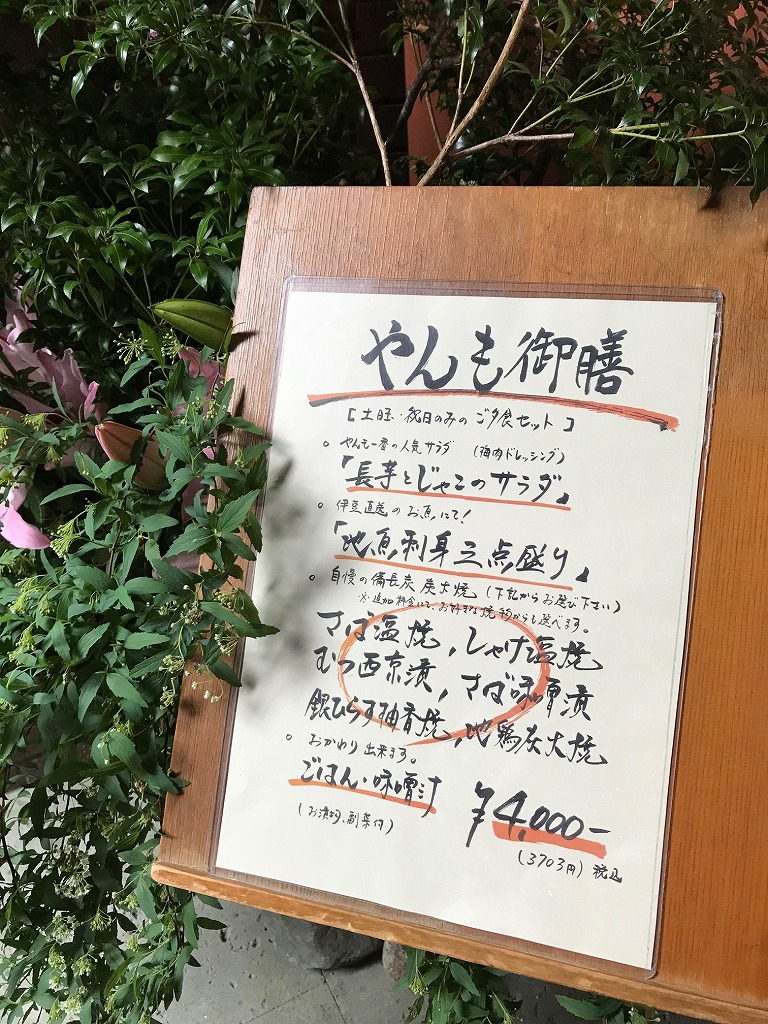 やんも御膳
[土日・祝日のみのご夕食セット]
○ やんも一番の人気サラダ (梅肉ドレッシング)
「長芋とじゃこのサラダ」
○ 伊豆直送のお魚にて!
「地魚刺身三点盛り」
○ 自慢の備長炭炭火焼 (下記からお選び下さい)
※追加料金にて、お好きな焼物からも選べます。
さば塩焼、しゃけ塩焼
むつ西京漬、さば味噌漬
銀ひらす柚香焼、地鶏炭火焼
○ おかわり出来ます。
ごはん・味噌汁
(お漬物、副菜付)
¥4,000-
(3703円) 税込